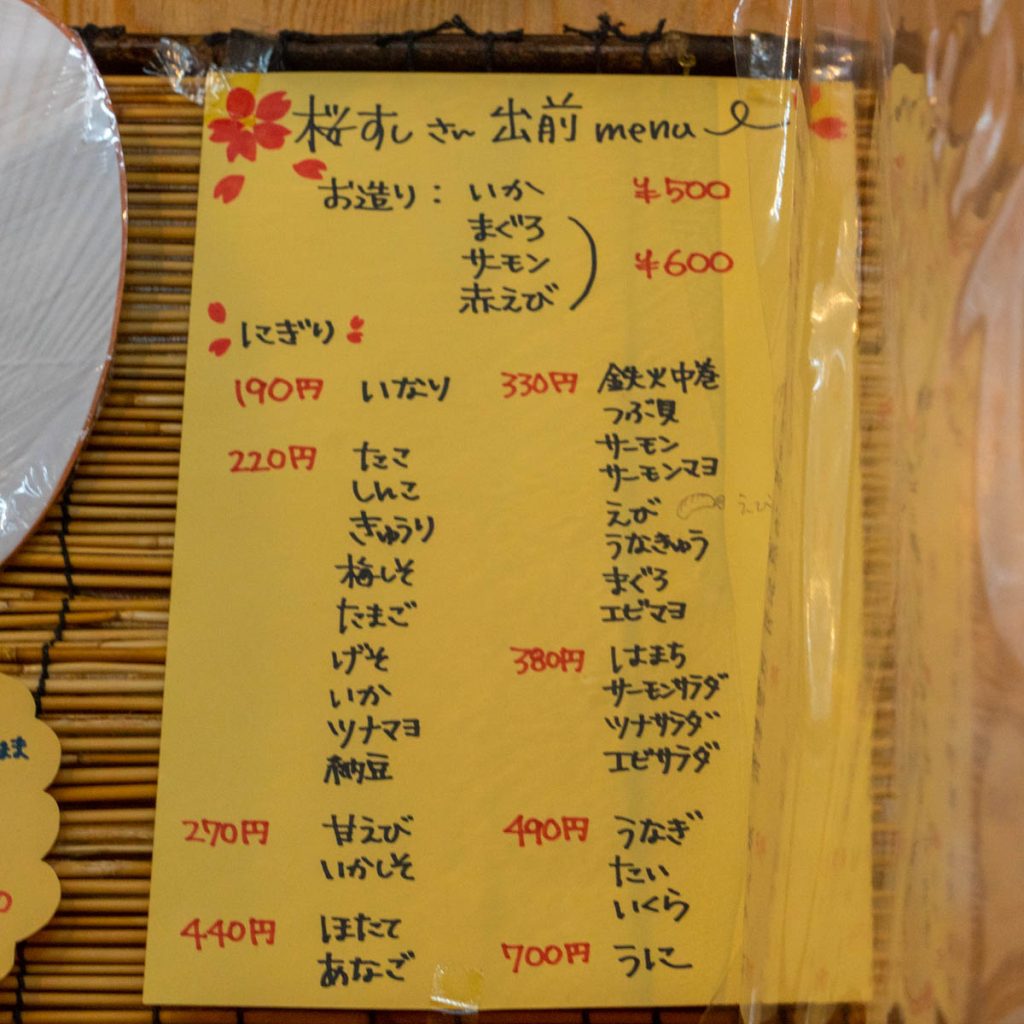 桜すし さん 出前 menu
お造り : いか ¥500
まぐろ
サーモン ¥600
赤えび
にぎり
190円 いなり
220円 たこ
しんこ
きゅうり
梅しそ
たまご
げそ
いか
ツナマヨ
納豆
270円 甘えび
いかしそ
440円 ほたて
あなご
330円 鉄火中巻
つぶ貝
サーモン
サーモンマヨ
えび えび
うなきゅう
まぐろ
エビマヨ
380円 はまち
サーモンサラダ
ツナサラダ
エビサラダ
490円 うなぎ
たい
いくら
700円 うに